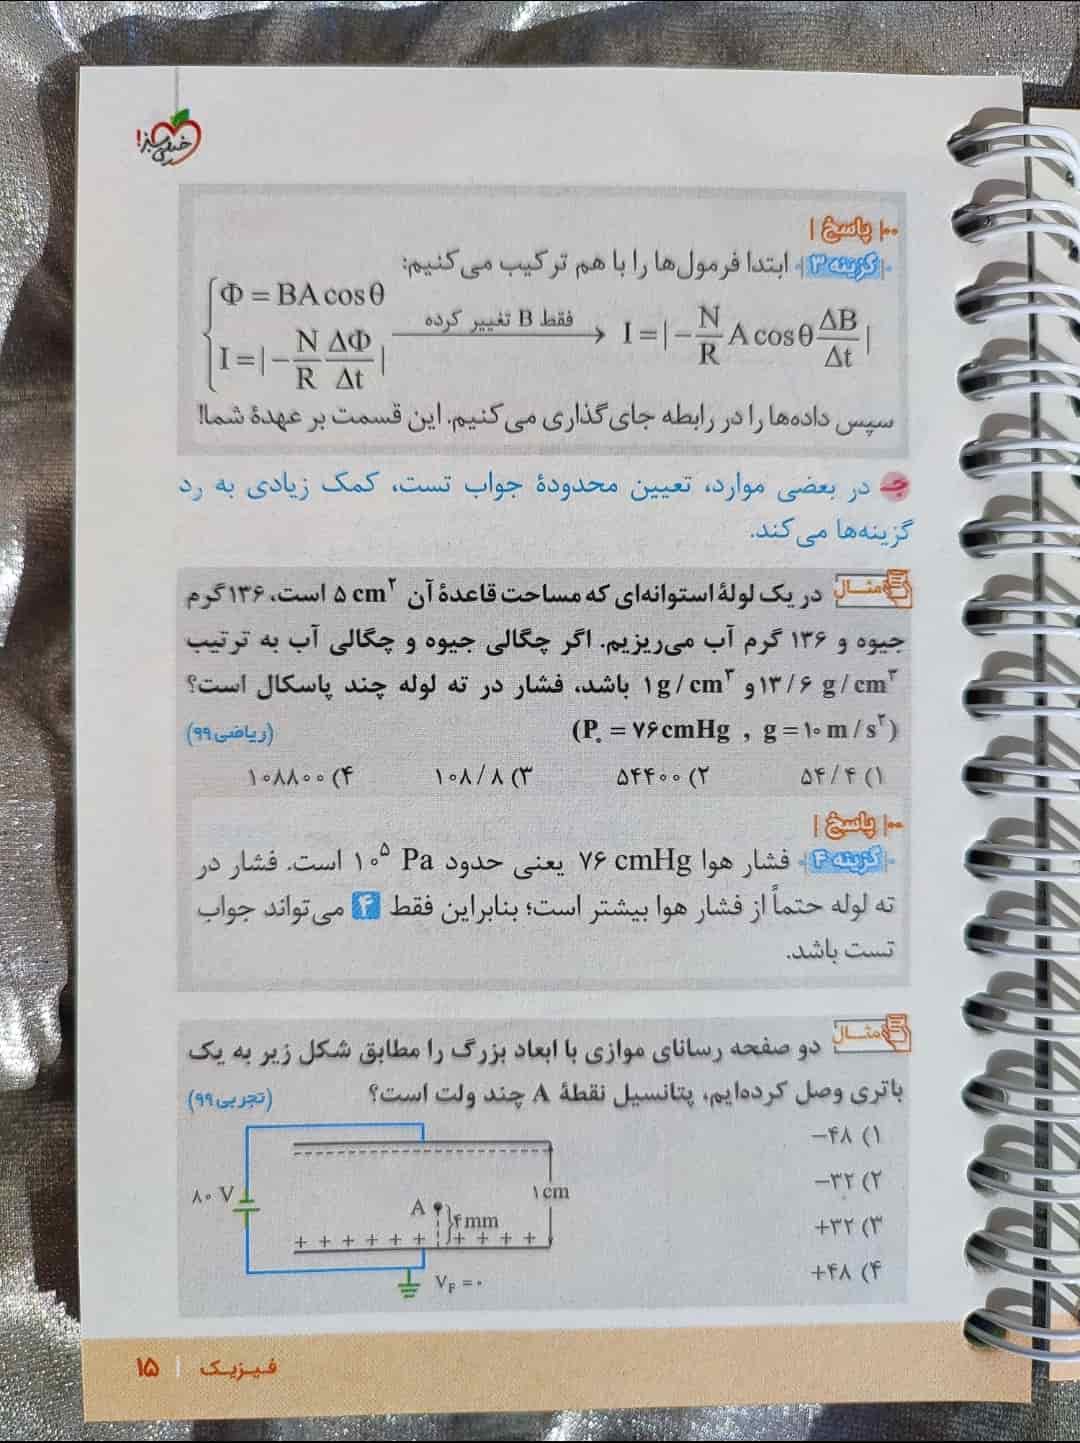 خیلی سبز!
پاسخ
گزینه ۳ ابتدا فرمول‌ها را با هم ترکیب می‌کنیم:
Φ = BA cosθ
I = |−N/R ΔΦ/Δt| فقط B تغییر کرده → I = |−N/R A cosθ ΔB/Δt|
سپس داده‌ها را در رابطه جای‌گذاری می‌کنیم. این قسمت بر عهدهٔ شما!
ج در بعضی موارد، تعیین محدودهٔ جواب تست، کمک زیادی به رد
گزینه‌ها می‌کند.
مثال در یک لولهٔ استوانه‌ای که مساحت قاعدهٔ آن ۵ cm² است، ۱۳۶ گرم
جیوه و ۱۳۶ گرم آب می‌ریزیم. اگر چگالی جیوه و چگالی آب به ترتیب
۱۳/۶ g/cm³ و ۱ g/cm³ باشد، فشار در ته لوله چند پاسکال است؟
(P₀ = ۷۶ cmHg , g = ۱۰ m/s²) (ریاضی ۹۹)
۱) ۵۴/۴ ۲) ۵۴۴۰۰ ۳) ۱۰۸/۸ ۴) ۱۰۸۸۰۰
پاسخ
گزینه ۴ فشار هوا ۷۶ cmHg یعنی حدود ۱۰⁵ Pa است. فشار در
ته لوله حتماً از فشار هوا بیشتر است؛ بنابراین فقط ۴ می‌تواند جواب
تست باشد.
مثال دو صفحه رسانای موازی با ابعاد بزرگ را مطابق شکل زیر به یک
باتری وصل کرده‌ایم، پتانسیل نقطهٔ A چند ولت است؟ (تجربی ۹۹)
۱) −۴۸
۲) −۳۲
۳) +۳۲
۴) +۴۸
۸۰ V
۱ cm
A
۴ mm
+ + + + + + + + + +
V_F = ۰
فیزیک | ۱۵